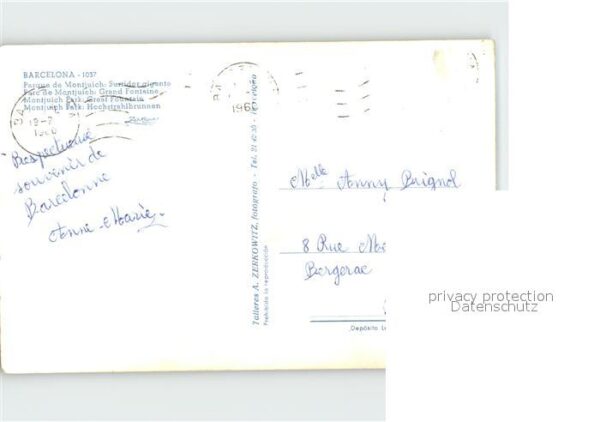 BARCELONA - 1037
Parque de Montjuich: Surtidor gigante
Parc de Montjuich: Grand Fontaine
Montjuich Park: Great Fountain
Montjuich Park: Hochstrahlbrunnen
1966
Respectueux
souvenir de
Barcelonne
Anne-Marie.
Talleres A. ZERKOWITZ, fotógrafo - Tel.
Prohibida la reproducción
Melle Anny Brignol
8 Rue
Bergerac
Depósito
privacy protection
Datenschutz